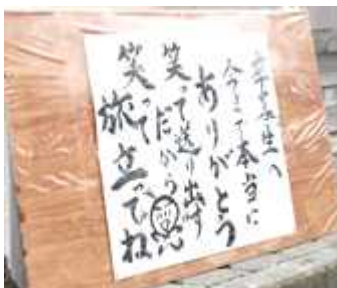 生へ
今まで本当に
ありがとう
笑って送り出す
だから
笑って
旅立ってね